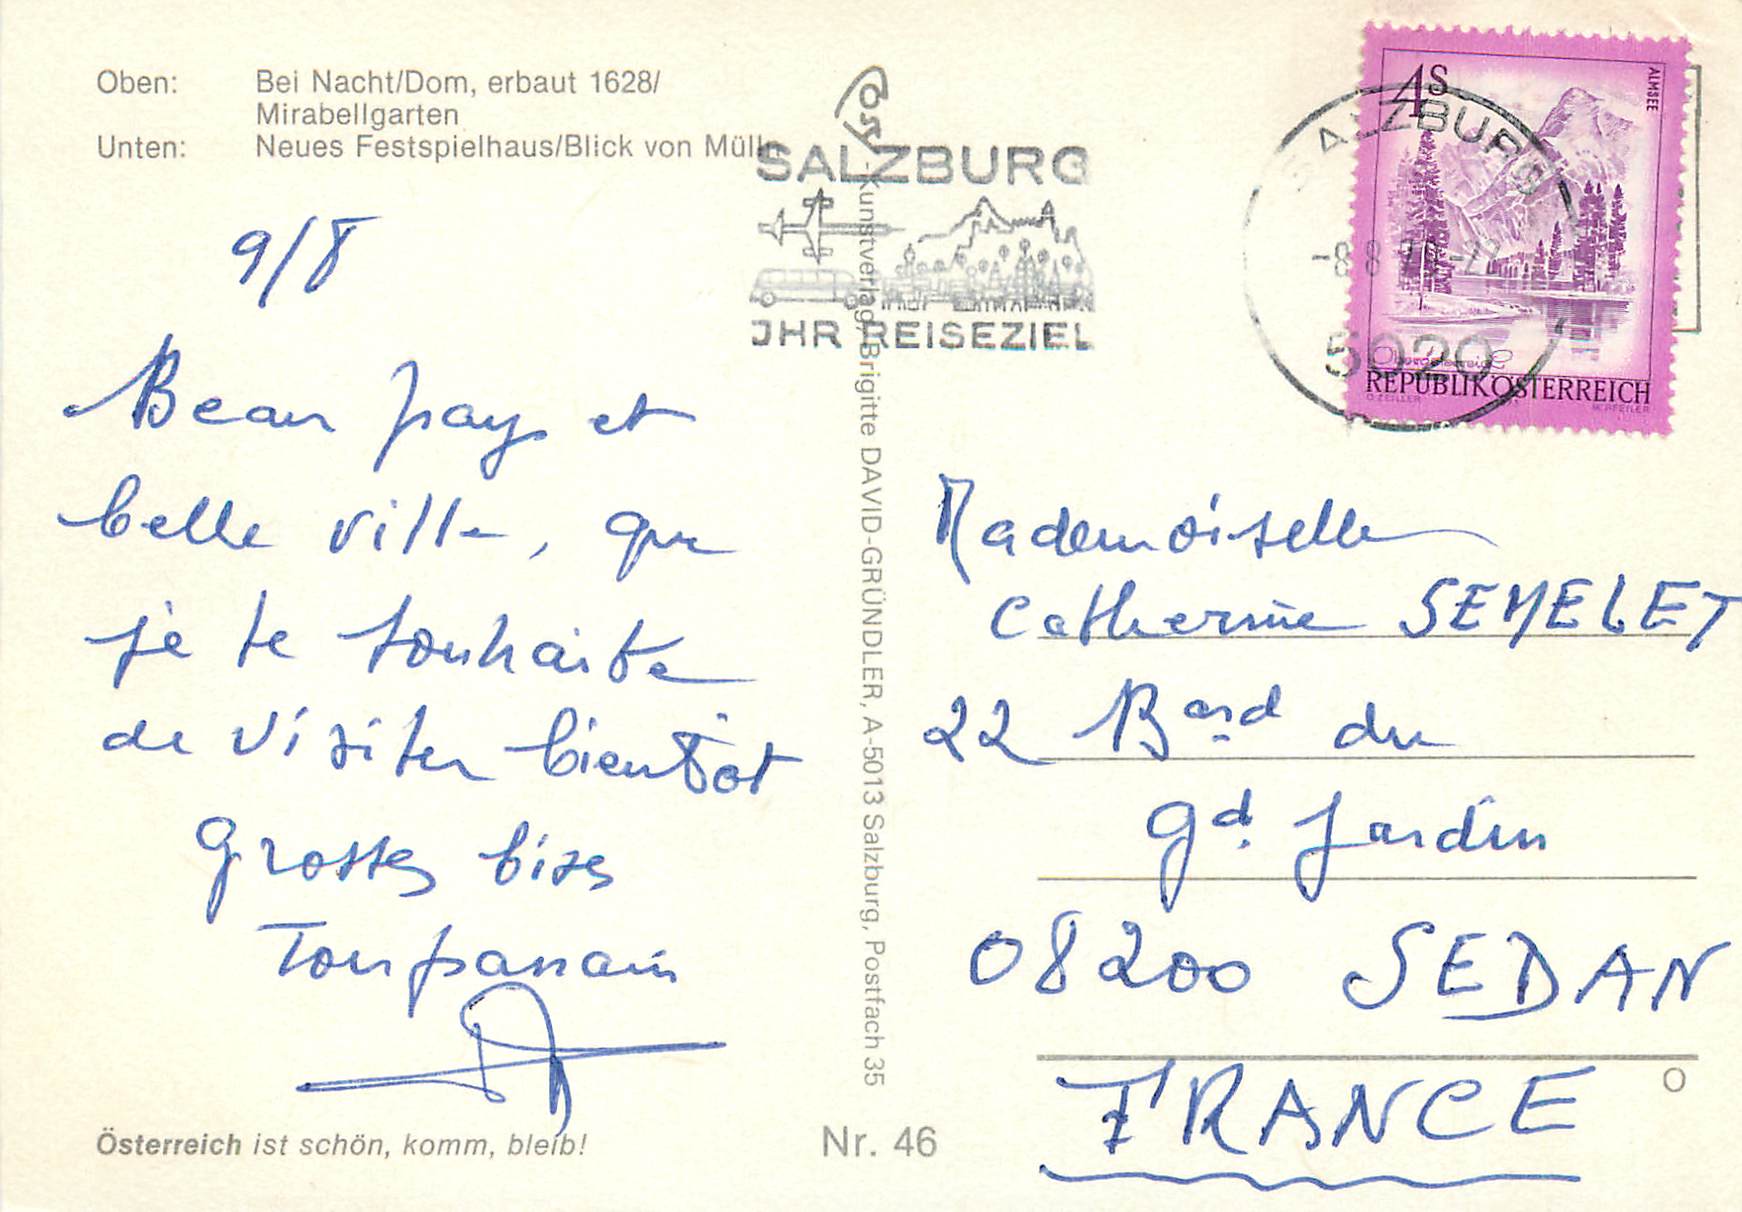 Oben: Bei Nacht/Dom, erbaut 1628/
Mirabellgarten
Unten: Neues Festspielhaus/Blick von Mülln
SALZBURG
JHR REISEZIEL
SALZBURG
-8.8.
5020
4S
ALMSEE
Oberösterreich
REPUBLIK ÖSTERREICH
O. ZEILLER
9/8
Beau pays et
belle ville, que
je te souhaite
de visiter bientôt
Grosses bises
Kunstverlag Brigitte DAVID-GRÜNDLER, A-5013 Salzburg, Postfach 35
Mademoiselle
Catherine SEMELET
22 Bard du
gd Jardin
08200 SEDAN
FRANCE
O
Österreich ist schön, komm, bleib!
Nr. 46